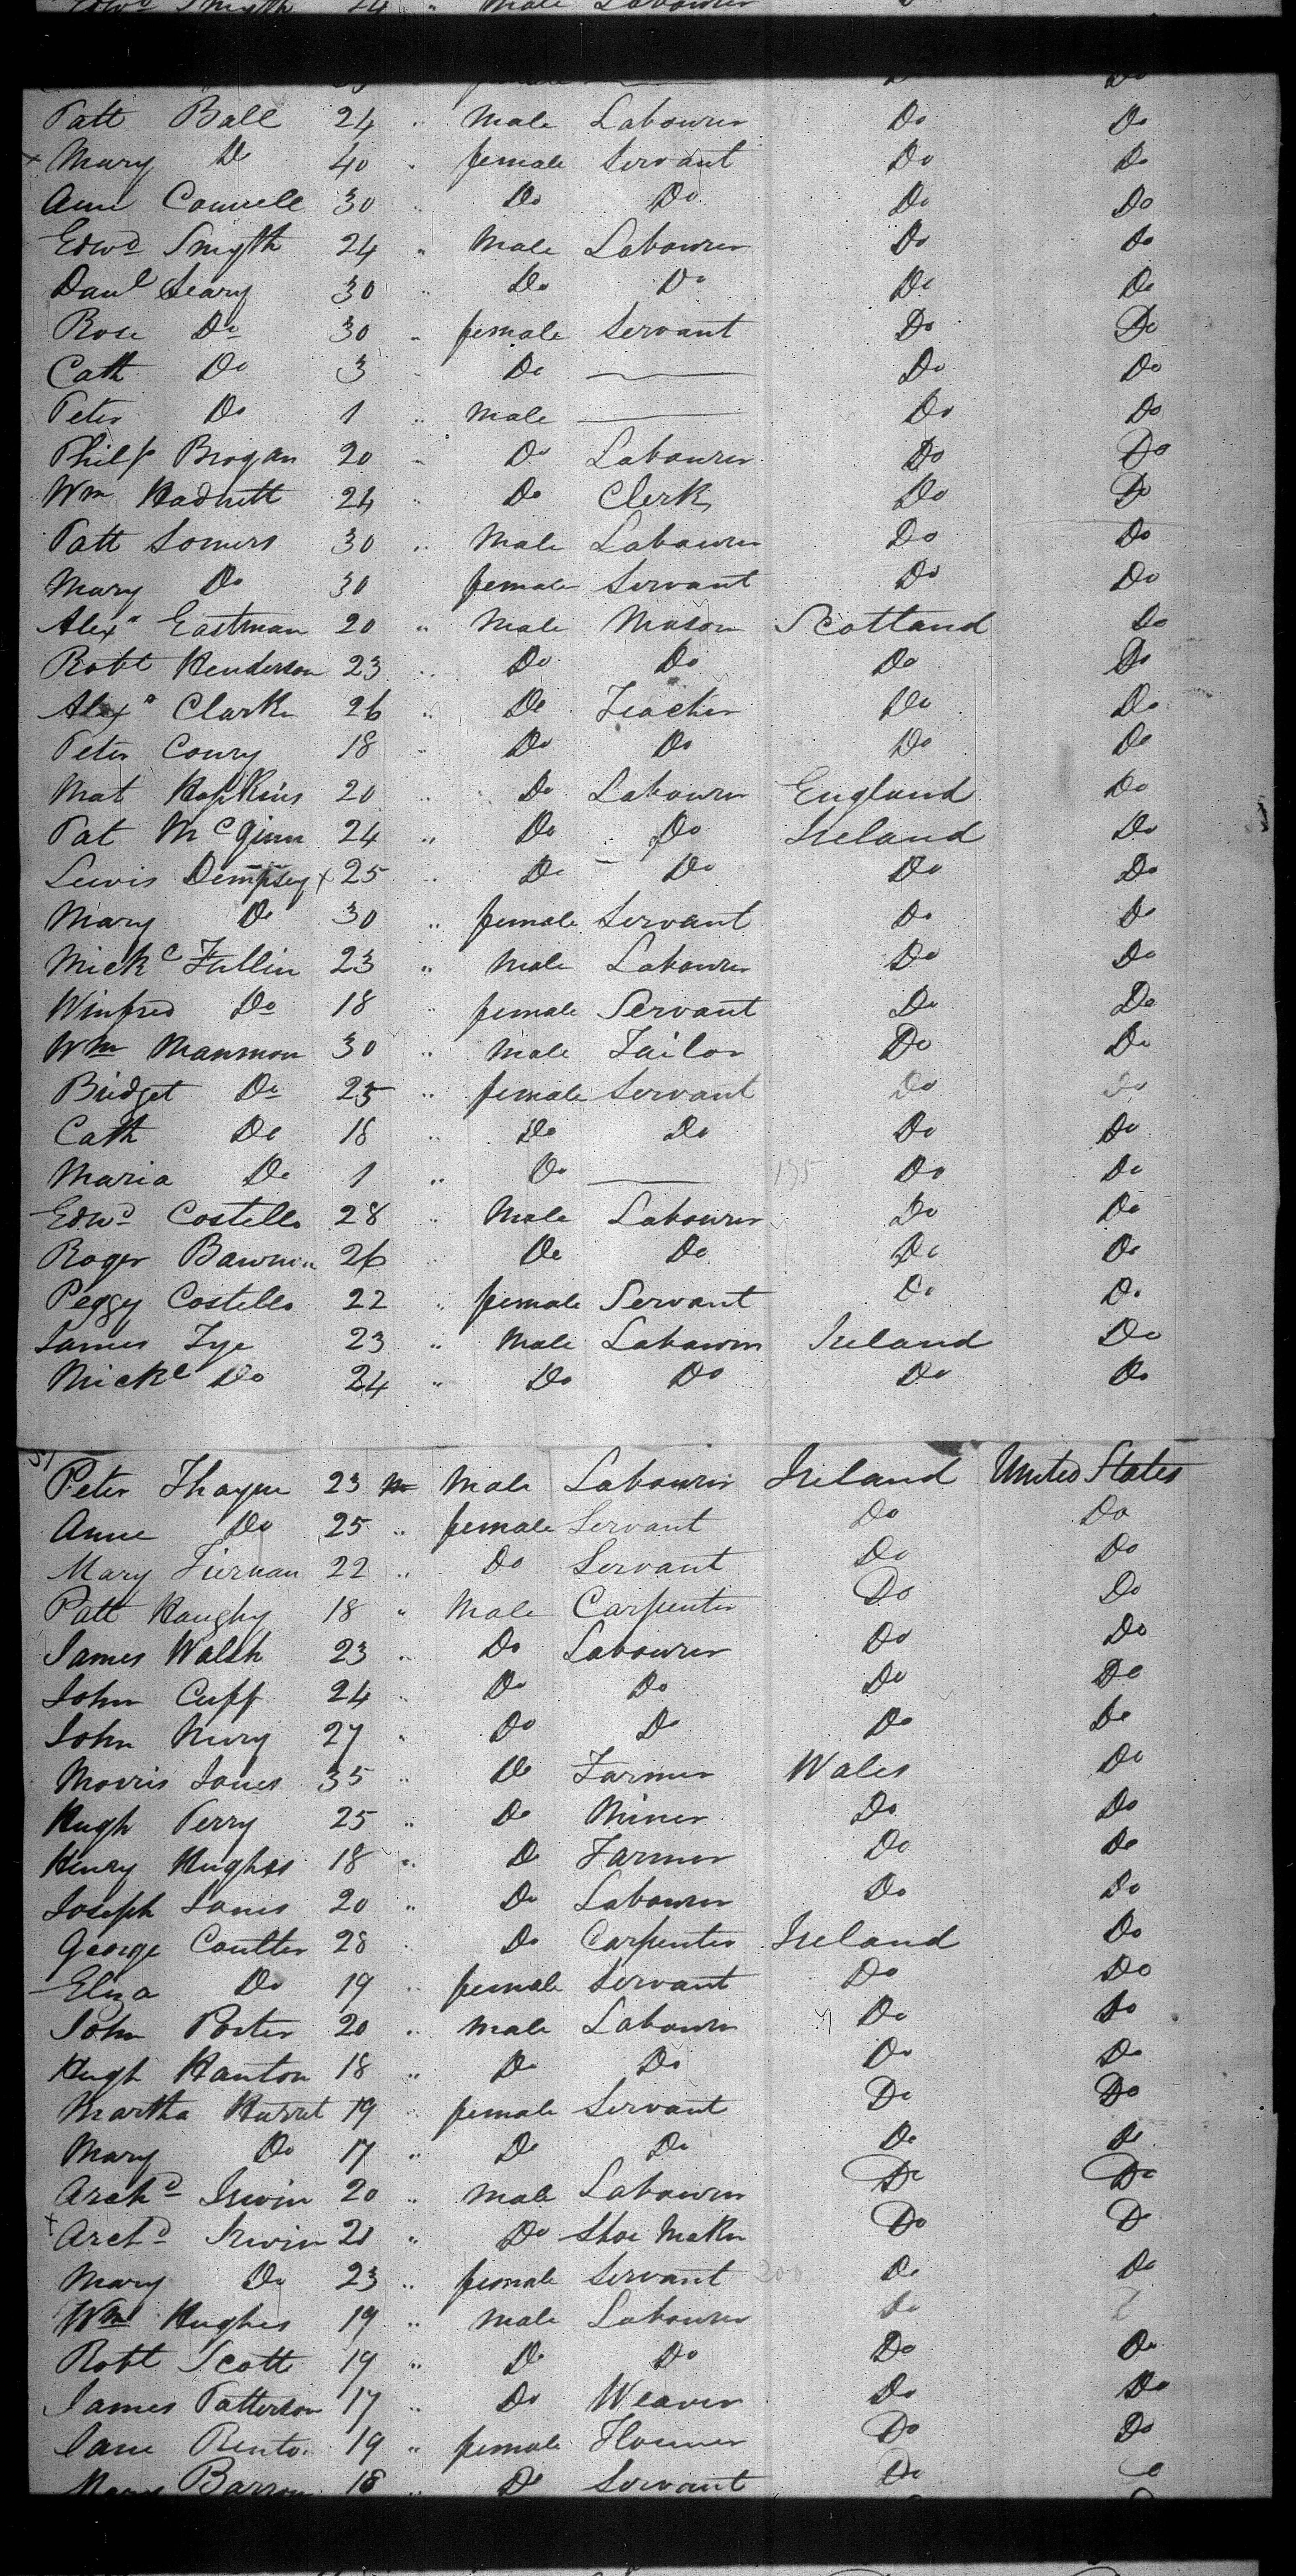 Edwd Smyth 24 " Male Labourer
Patt Ball 24 " Male Labourer Do Do
x Mary Do 40 " female Servant Do Do
Ann Connell 30 " Do Do Do Do
Edwd Smyth 24 " Male Labourer Do Do
Danl Leary 30 " Do Do Do Do
Rose Do 30 " female Servant Do Do
Cath Do 3 " Do — Do Do
Peter Do 1 " Male — Do Do
Philp Brogan 20 " Do Labourer Do Do
Wm Hadnett 24 " Do Clerk Do Do
Patt Somers 30 " Male Labourer Do Do
Mary Do 30 female Servant Do Do
Alexr Eastman 20 " Male Mason Scotland Do
Robt Henderson 23 " Do Do Do Do
Alexr Clark 26 " Do Teacher Do Do
Peter Coury 18 " Do Do Do Do
Mat Hopkins 20 " Do Labourer England Do
Pat McGinn 24 " Do Do Ireland Do
Lewis Dempsey x 25 " Do Do Do Do
Mary Do 30 " female Servant Do Do
Mickl Fullin 23 " Male Labourer Do Do
Winfred Do 18 " female Servant Do Do
Wm Manmon 30 " Male Tailor Do Do
Bridget Do 25 " female Servant Do Do
Cath Do 18 " Do Do Do Do
Maria Do 1 " Do — 195 Do Do
Edwd Costello 28 " Male Labourer Do Do
Roger 26 " Do Do Do Do
Peggy Costello 22 " female Servant Do Do
James Tye 23 " Male Labourer Ireland Do
Mickl Do 24 " Do Do Do Do
Peter Thayne 23 Male Labourer Ireland United States
Anne Do 25 " female Servant Do Do
Mary Tiernan 22 " Do Servant Do Do
Patt Haughy 18 " Male Carpenter Do Do
James Walsh 23 " Do Labourer Do Do
John Cuff 24 " Do Do Do Do
John Nury 27 " Do Do Do Do
Morris Jones 35 " Do Farmer Wales Do
Hugh Perry 25 " Do Miner Do Do
Henry Hughes 18 " Do Farmer Do Do
Joseph Jones 20 " Do Labourer Do Do
George Coulter 28 " Do Carpenter Ireland Do
Eliza Do 19 " female Servant Do Do
John Porter 20 " Male Labourer Do Do
Hugh Hanton 18 " Do Do Do Do
Martha Hurret 19 " female Servant Do Do
Mary Do 17 " Do Do Do Do
Archd Irwin 20 " Male Labourer Do Do
x Archd Irwin 21 " Do Shoe Maker Do Do
Mary Do 23 " female Servant 200 Do Do
Wm Hughes 19 " Male Labourer Do
Robt Scott 19 " Do Do Do Do
James Patterson 17 " Do Weaver Do Do
Jane 19 " female Do Do
Mary Barron 18 " Do Servant Do